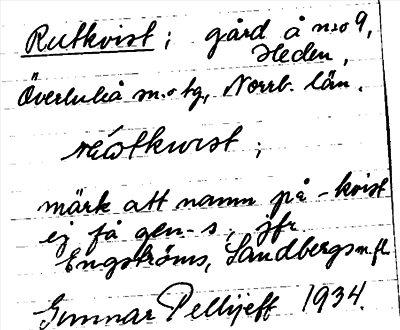 Rutkvist; gård å n:o 9,
Heden,
Överluleå sn. o tg, Norrb. län.
märk att namn på -kvist
ej få gen-s, jfr
Engströms, Sandbergs m.fl.
Gunnar Pellijeff 1934.